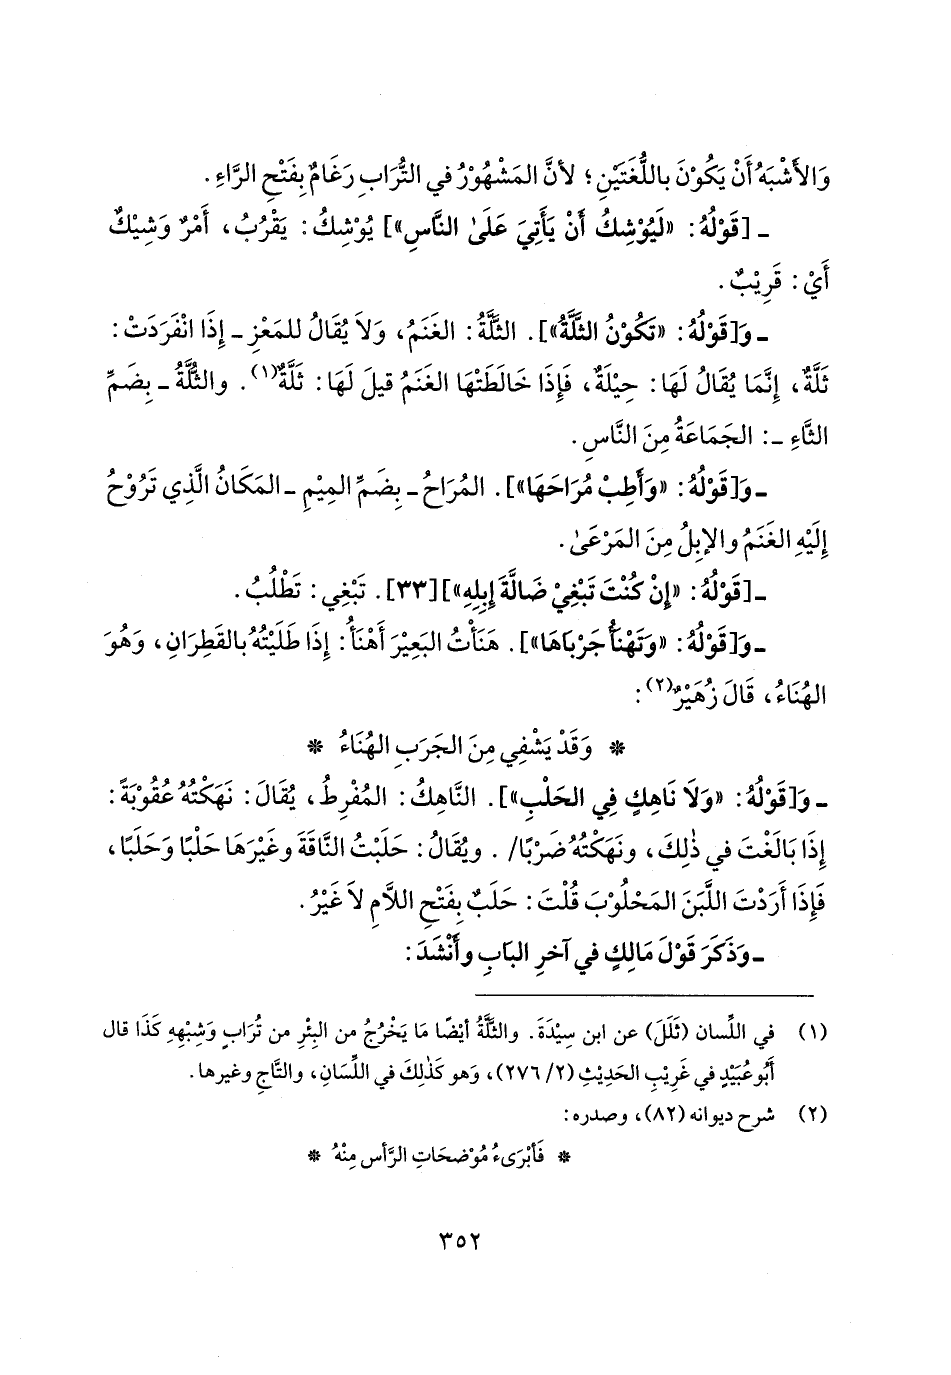 وَالأَشْبَهُ أَنْ يَكُوْنَ بِاللُّغَتَيْنِ؛ لأنَّ المَشْهُوْرُ في التُّرَاب رَغَامٌ بِفَتْحِ الرَّاءِ.
ـ [قَوْلُهُ: «لَيُوْشِكُ أَنْ يَأْتِيَ عَلَىٰ النَّاسِ»] يُوْشِكُ: يَقْرُبُ، أَمْرٌ وَشِيْكٌ
أَيْ: قَرِيْبٌ.
ـ وَ[قَوْلُهُ: «تَكُوْنُ الثَّلَّةُ»]. الثَّلَّةُ: الغَنَمُ، وَلاَ يُقَالُ للمَعْزِ ـ إِذَا انْفَرَدَتْ:
ثَلَّةٌ، إِنَّمَا يُقَالُ لَهَا: حِيْلَةٌ، فَإِذَا خَالَطَتْهَا الغَنَمُ قيلَ لَهَا: ثَلَّةٌ(١). والثُّلَّةُ ـ بِضَمِّ
الثَّاءِ ـ: الجَمَاعَةُ مِنَ النَّاسِ.
ـ وَ[قَوْلُهُ: «وَأَطِبْ مُرَاحَهَا»]. المُرَاحُ ـ بِضَمِّ المِيْمِ ـ المَكَانُ الَّذِي تَرُوْحُ
إِلَيْهِ الغَنَمُ والإبِلُ مِنَ المَرْعَىٰ.
ـ [قَوْلُهُ: «إِنْ كُنْتَ تَبْغِيْ ضَالَّةَ إِبِلِهِ»] [٣٣]. تَبْغِي: تَطْلُبُ.
ـ وَ[قَوْلُهُ: «وَتَهْنَأُ جَرْبَاهَا»]. هَنَأْتُ البَعِيْرَ أَهْنَأُ: إِذَا طَلَيْتُهُ بالقَطِرَانِ، وَهُوَ
الهُنَاءُ، قَالَ زُهَيْرٌ(٢):
* وَقَدْ يَشْفِي مِنَ الجَرَبِ الهُنَاءُ *
ـ وَ[قَوْلُهُ: «وَلاَ نَاهِكٍ فِي الحَلْبِ»]. النَّاهِكُ: المُفْرِطُ، يُقَالَ: نَهَكْتُهُ عُقُوْبَةً:
إِذَا بَالَغْتَ في ذٰلِكَ، ونَهَكْتُهُ ضَرْبًا/. ويُقَالُ: حَلَبْتُ النَّاقَةَ وغَيْرَهَا حَلْبًا وَحَلَبًا،
فَإِذَا أَرَدْتَ اللَّبَنَ المَحْلُوْبَ قُلْتَ: حَلَبٌ بِفَتْحِ اللاَّمِ لاَ غَيْرُ.
ـ وَذَكَرَ قَوْلَ مَالِكٍ في آخرِ البَابِ وأَنْشَدَ:
(١) في اللِّسان (ثَلَلَ) عن ابن سِيْدَةَ. والثَّلَّةُ أيْضًا مَا يَخْرُجُ من البِئْرِ من تُرَابٍ وَشِبْهِهِ كَذَا قال
أَبُو عُبَيْدٍ في غَرِيْبِ الحَدِيْثِ (٢/ ٢٧٦)، وَهو كَذٰلِكَ في اللِّسَانِ، والتَّاجِ وغيرها.
(٢) شرح ديوانه (٨٢)، وصدره:
* فَأَبْرَىءُ مُوْضحَاتِ الرَّأسِ مِنْهُ *
٣٥٢